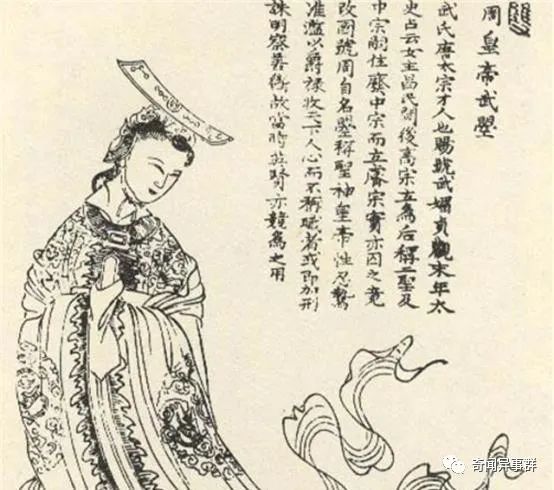 雙
周皇帝武曌
武氏唐太宗才人也賜號武媚貞觀末年太
史占云女主昌民間後高宗立為后稱二聖及
中宗嗣位廢中宗而立睿宗實亦囚之竟
改國號周自名曌稱聖神皇帝性忍鷙
濫以爵祿收天下人心而不稱職者或即加刑
誅明察善斷故當時英賢亦競為之用
奇闻异事群